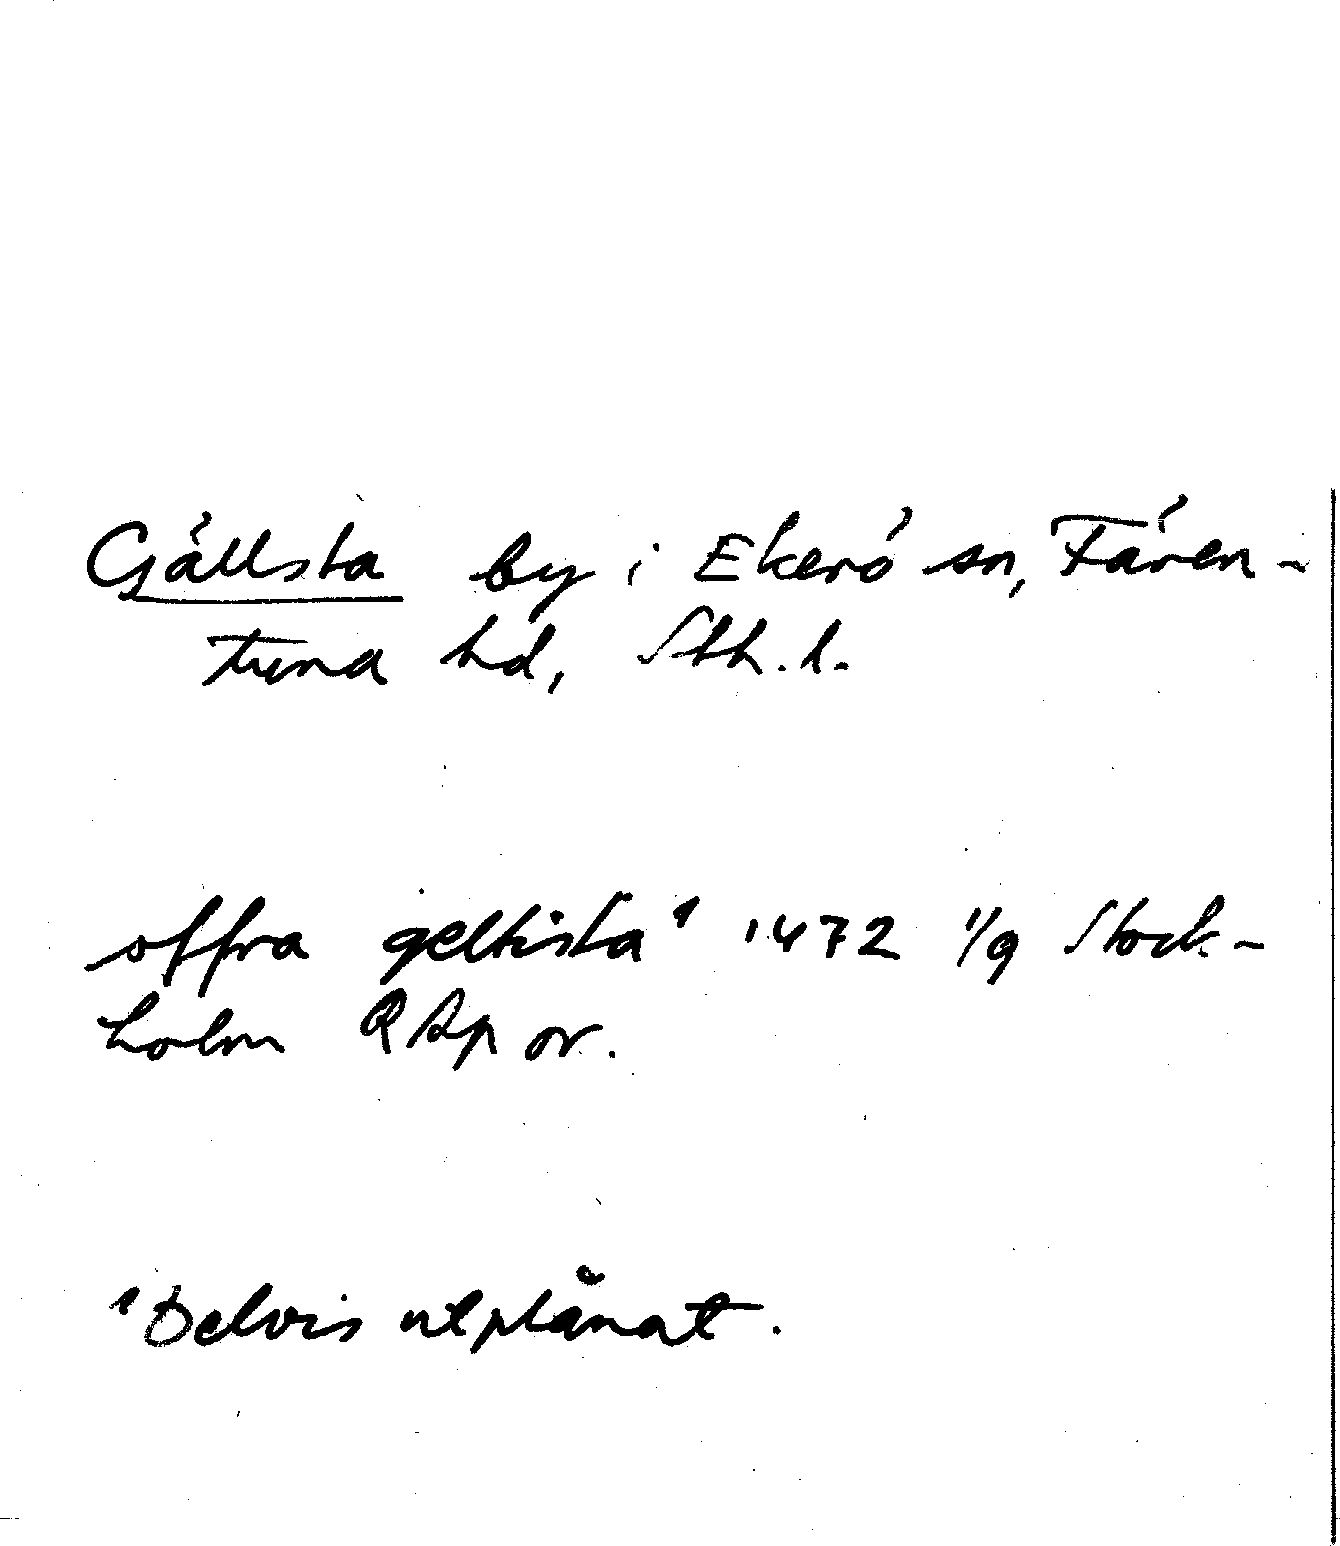 Gällsta by i Ekerö sn, Fären-
tuna hd, Sthh. l.
offra geltista¹ 1472 1/9 Stock-
holm RAp or.
¹Delvis utplånat.